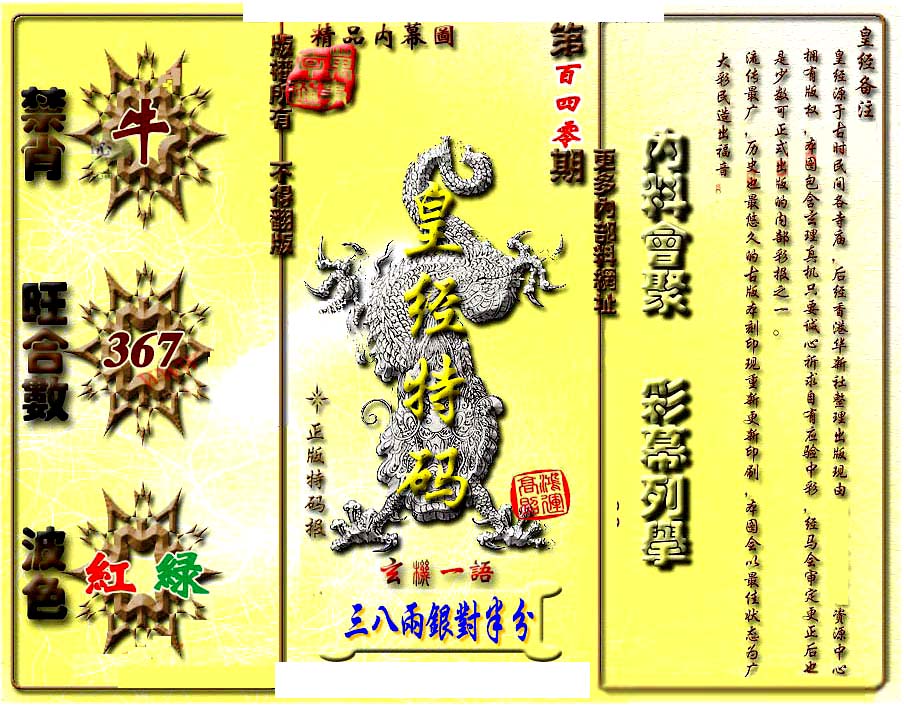 皇经备注
皇经源于古时民间各寺庙，后经香港华新社整理出版现由
资源中心
拥有版权，本图包含玄理真机只要诚心祈求自有应验中彩，经马会审定更正后也
是少数可正式出版的内部彩报之一。
流传最广，历史也最悠久的古版本刻印现重新更新印刷，本图会以最佳状态为广
大彩民造出福音
內料會聚
彩幕列舉
更多內部料網址
第百四零期
精品内幕圖
皇经特码
正版特码报
鴻運高照
玄機一語
三八兩銀對半分
版權所有
不得翻版
禁肖
牛
旺合數
367
波色
紅 綠